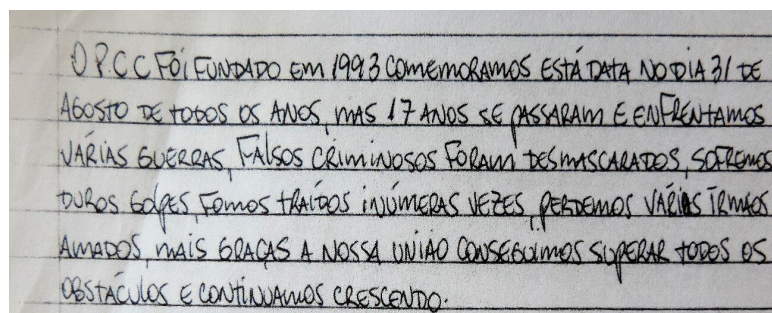 O P.C.C FOI FUNDADO EM 1993 COMEMORAMOS ESTÁ DATA NO DIA 31 DE
AGOSTO DE TODOS OS ANOS, MAS 17 ANOS SE PASSARAM E ENFRENTAMOS
VÁRIAS GUERRAS, FALSOS CRIMINOSOS FORAM DESMASCARADOS, SOFREMOS
DUROS GOLPES, FOMOS TRAÍDOS INÚMERAS VEZES, PERDEMOS VÁRIAS IRMÃOS
AMADOS, MAIS GRAÇAS A NOSSA UNIÃO CONSEGUIMOS SUPERAR TODOS OS
OBSTÁCULOS E CONTINUAMOS CRESCENDO.